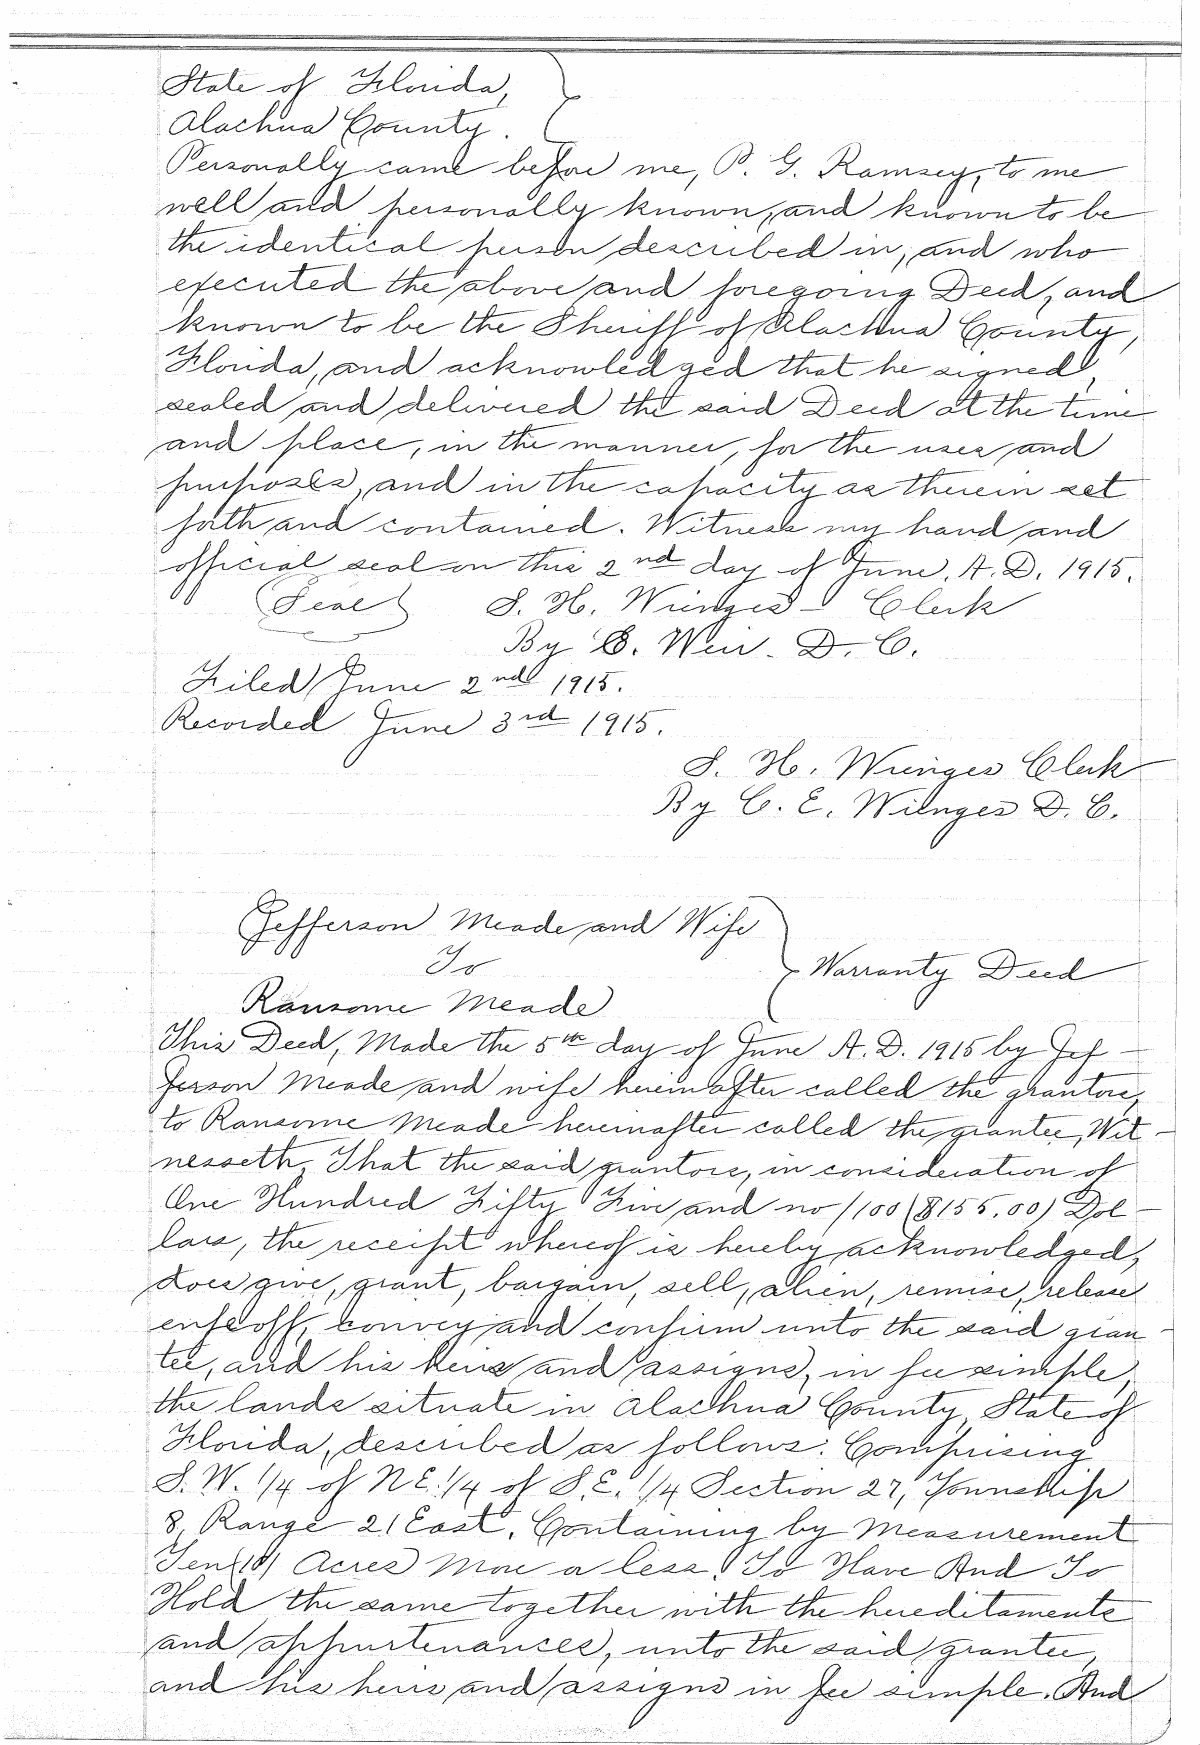 State of Florida,
Alachua County.
Personally came before me, P. G. Ramsey, to me
well and personally known, and known to be
the identical person described in, and who
executed the above and foregoing Deed, and
known to be the Sheriff of Alachua County,
Florida, and acknowledged that he signed,
sealed and delivered the said Deed at the time
and place, in the manner, for the uses and
purposes, and in the capacity as therein set
forth and contained. Witness my hand and
official seal on this 2nd day of June. A. D. 1915.
(Seal) S. H. Wienges - Clerk
By E. Weir. D. C.
Filed June 2nd 1915.
Recorded June 3rd 1915.
S. H. Wienges Clerk
By C. E. Wienges D. C.
Jefferson Meade and Wife
To
Warranty Deed
Ransome Meade
This Deed, Made the 5th day of June A. D. 1915 by Jef-
ferson Meade and wife hereinafter called the grantors,
to Ransome Meade hereinafter called the grantee, Wit-
nesseth, That the said grantors, in consideration of
One Hundred Fifty Five and no/100 ($155.00) Dol-
lars, the receipt whereof is hereby acknowledged,
does give, grant, bargain, sell, alien, remise, release
enfeoff, convey and confirm unto the said gran-
tee, and his heirs and assigns, in fee simple,
the lands situate in Alachua County, State of
Florida, described as follows: Comprising
S. W. 1/4 of N E. 1/4 of S. E. 1/4 Section 27, Township
8, Range 21 East. Containing by Measurement
Ten (10) Acres More or less. To Have And To
Hold the same together with the hereditaments
and appurtenances, unto the said grantee,
and his heirs and assigns in fee simple. And